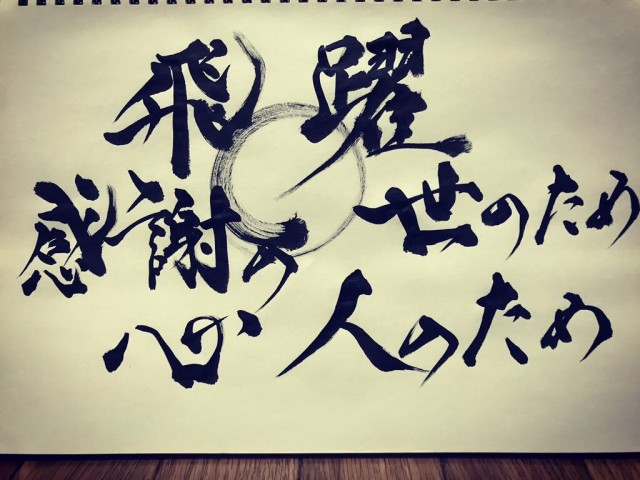 飛躍
感謝の心
世のため
人のため